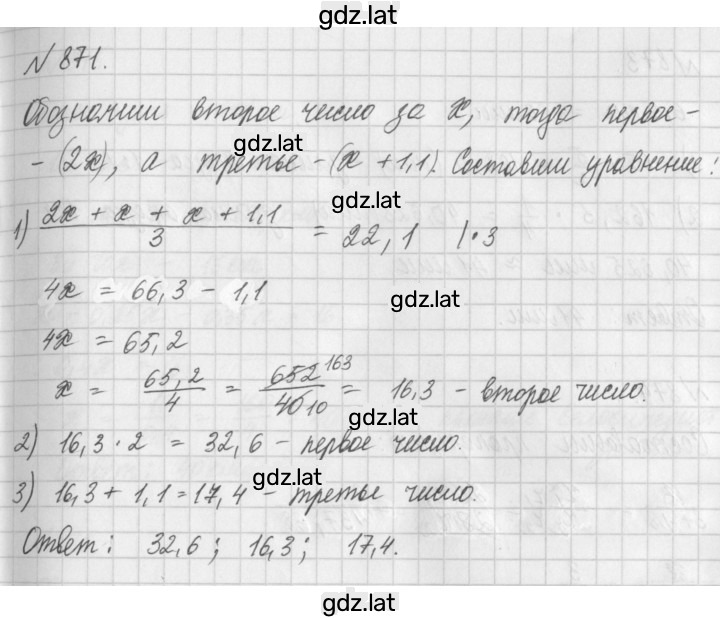 gdz.lat
№ 871.
Обозначим второе число за x, тогда первое -
gdz.lat
- (2x), а третье - (x + 1,1). Составим уравнение:
gdz.lat
1) (2x + x + x + 1,1)/3 = 22,1 | · 3
4x = 66,3 - 1,1
gdz.lat
4x = 65,2
x = 65,2/4 = 652 163/40 10 = 16,3 - второе число.
gdz.lat
2) 16,3 · 2 = 32,6 - первое число.
gdz.lat
3) 16,3 + 1,1 = 17,4 - третье число.
Ответ: 32,6; 16,3; 17,4.
gdz.lat
gdz.lat